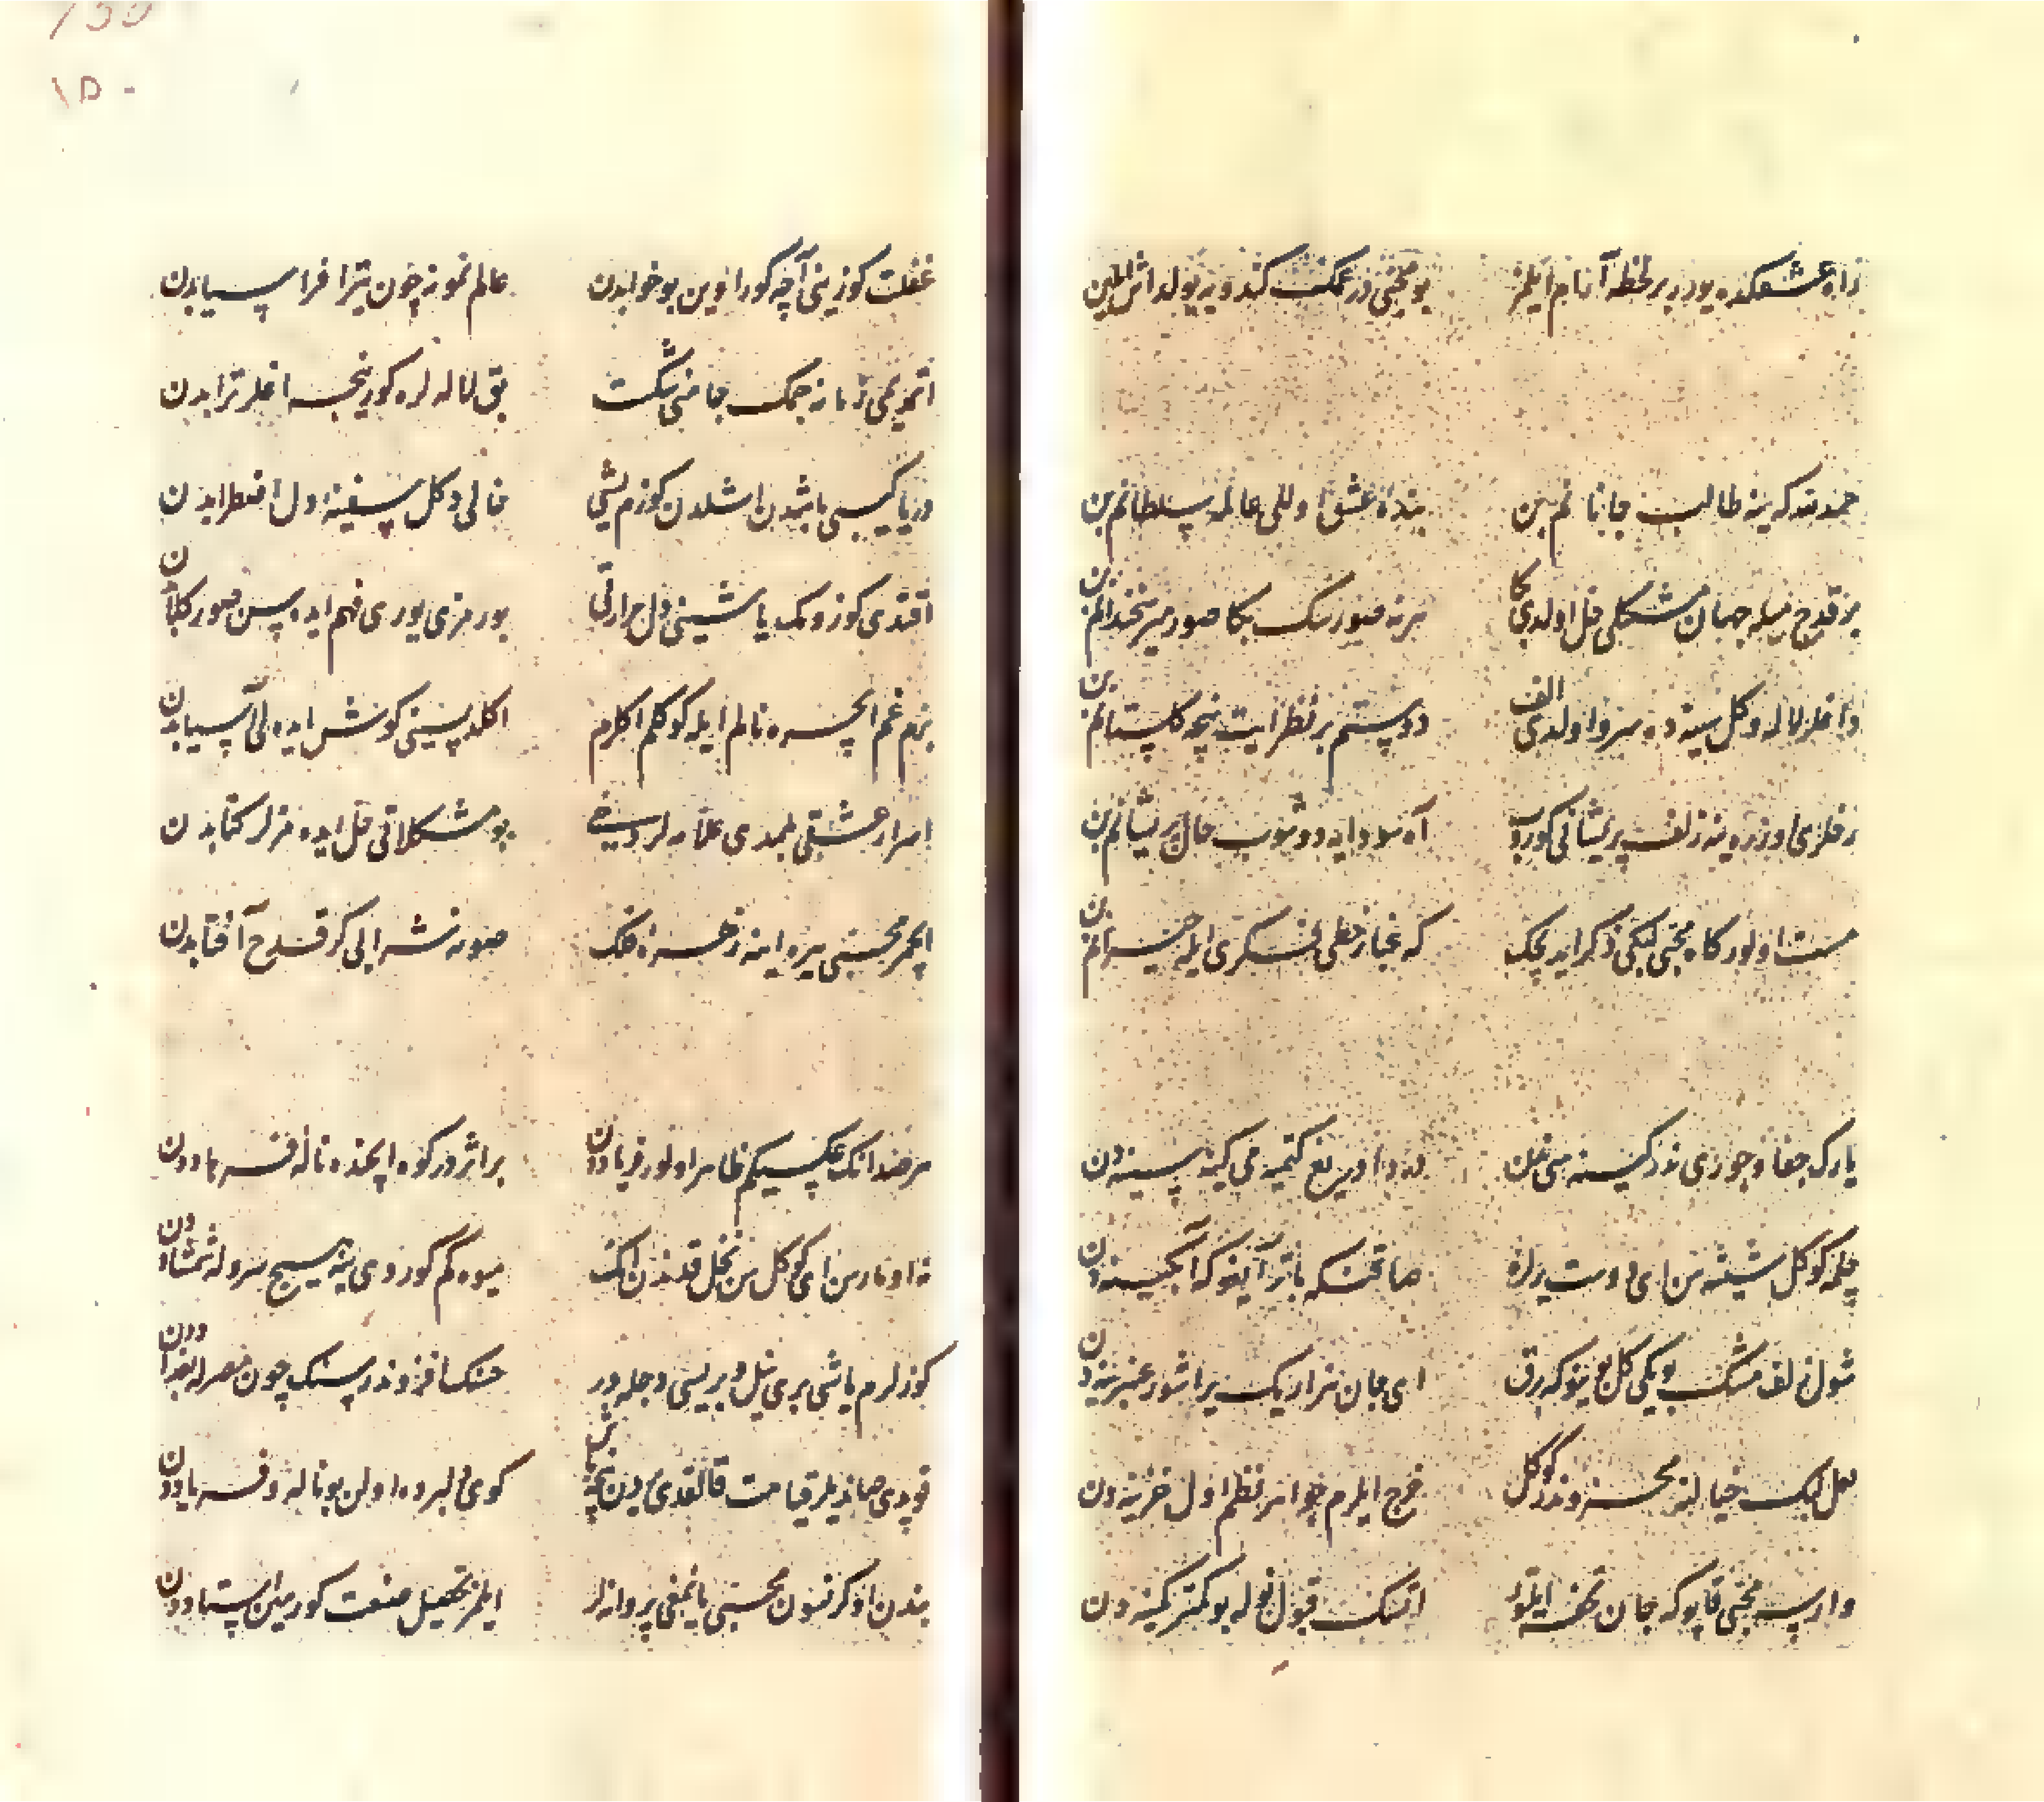 راه عشقکده یورر بر لحظه آنام ایلمز
بو محبی در غمک کندویه یولداش ایلین
حمد لله که ینه طالب جانانم بن
بنده عشق اوللی عالمه سلطانم بن
بر قدح میله جهان مشکلی حل اولدی بکا
هر نه صورسک بکا صور میر سخندانم بن
داغلر لاله و گل سینه ده سرو اولدی الف
دوستم بر نظر ایت نیجه گلستانم بن
رخلری اوزره ینه زلف پریشانی کورب
آه سودا ایله دوشوب حال پریشانم بن
مست اولور کاه محبی لبکی ذکر ایدیجک
که غبار خطی فکری ایله حیرانم بن
یارک جفا و جوری ندر کینه سی ندن
درد دریغ کتمیه می کینه سینه دن
چالمه کوکل شیشه سن ای دوست یرلره
صاقن که باتر آیغوکه آبگینه دن
شول زلف مشک بویکی گل یوزوکه رق
ای جان نزاریک یراشور عنبرینه دن
لعل لبک خیالنه مخزندر کوکل
خرج ایلرم جواهر نظم اول خزینه دن
وارسه محبی قاپوکه جان تحفه ایلیو
انسک قبول نوله بو کمتر کمینه دن
غفلت کوزینی آچه کور اوین بو خوابدن
عالم نمونه چون یتر افراسیابدن
اتمدیمی زمانه جمک جامنی شکست
بق لاله لره کور نیجه اغلر ترابدن
دریا کبی باشدن اشلدن کوزم یشی
خالی دکل سفینه دل اضطرابدن
اقتدی کوزومک یاشینی دل حرارتی
بو رمزی یوری فهم ایده سن صور کبابدن
بزم غم ایچره نالم ایله کوکلم اکلرم
اکلد سینی کوش ایده لی آسیابدن
اسرار عشقی بلمدی علامه لر دریغ
بو مشکلاتی حل ایده مزلر کتابدن
ایچمر محبی یره اینه زهره فلک
صونه شرابی کر قدح آفتابدن
هر صدا انک عکسیکم ظاهر اولور فریاددن
بر اثردر کوه ایچنده ناله فرهاددن
نه اومارسن ای کوکل سن نخل قدندن انک
میوه کم کوردی یه هیچ سرو له شمشاددن
کوزلرم یاشی بری نیل و بریسی دجله در
حسنک افزوندر سنک چون مصر له بغداددن
قوپدی صاندیلر قیامت قالقدی یردن نیجه
کوی دلبرده اولن بو ناله و فریاددن
بندن اوکرنسون محبی یانمغی پروانه لر
ایلمز تحصیل صنعت کورمین استاددن